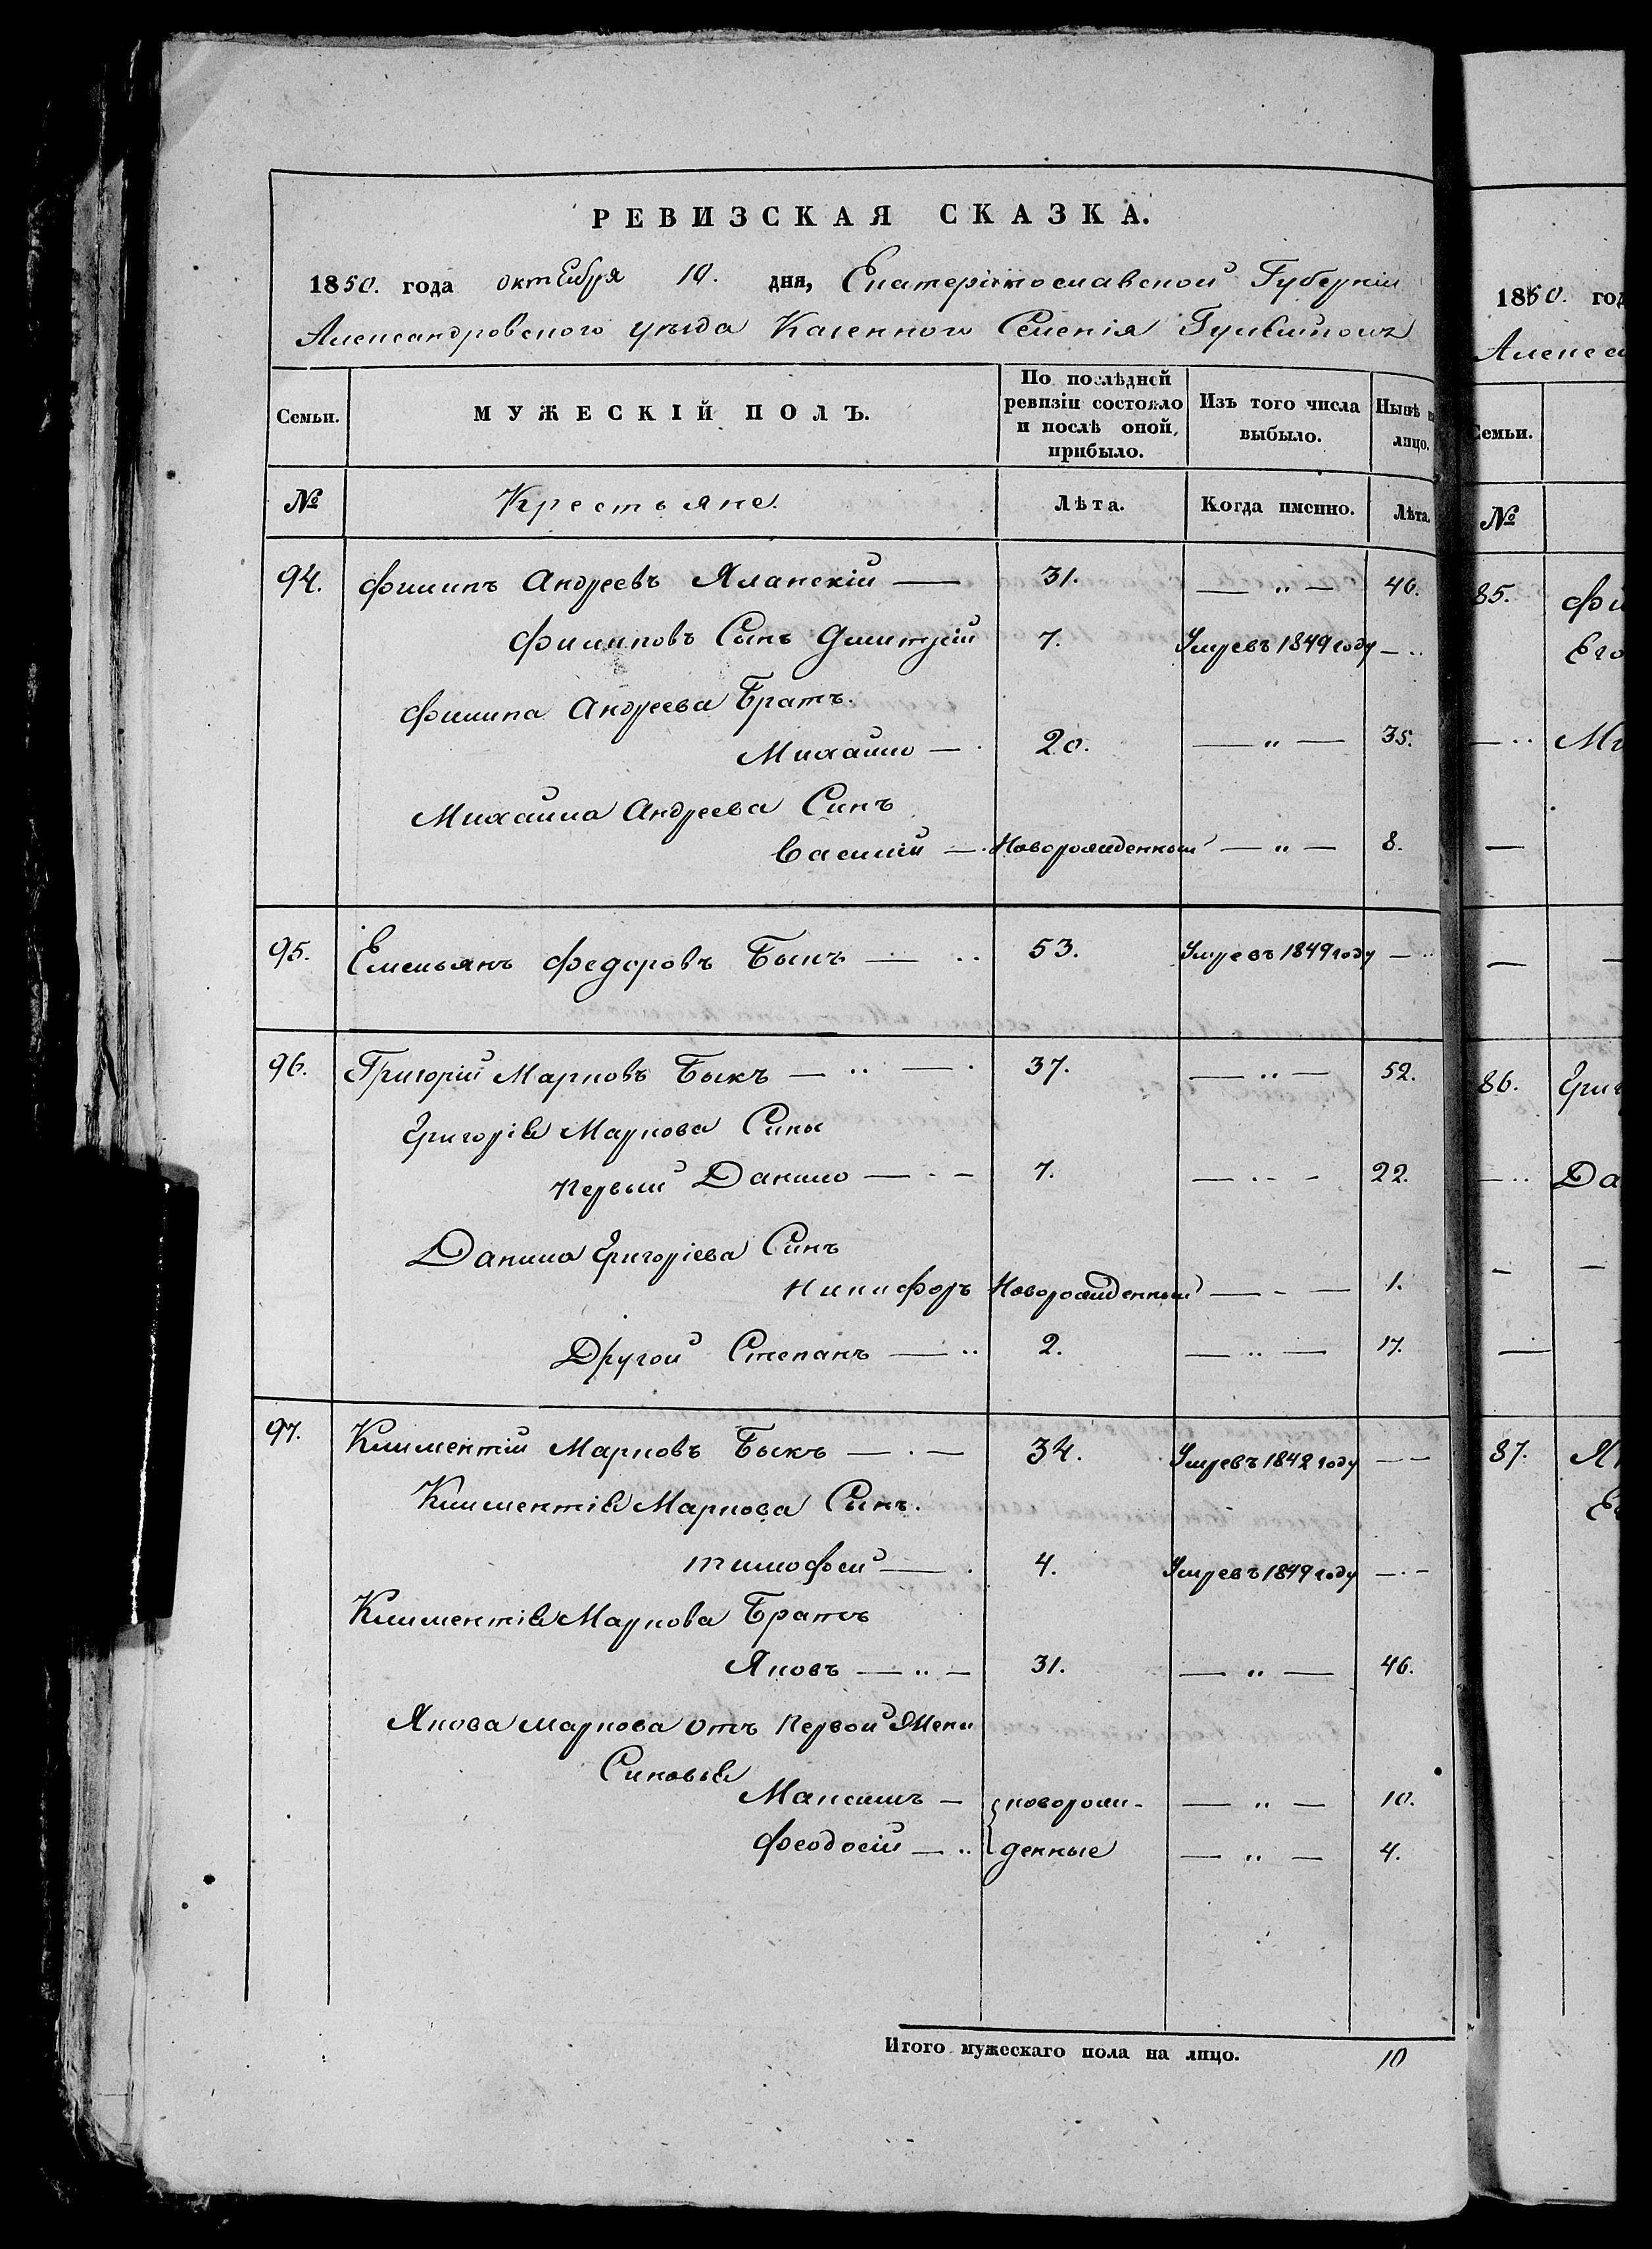 РЕВИЗСКАЯ СКАЗКА.
1850. года октября 10. дня, Екатеринославской Губерніи
Александровского уѣзда Казенного Селенія
Семьи. МУЖЕСКІЙ ПОЛЪ. По послѣдней ревизіи состояло и послѣ оной, прибыло. Изъ того числа выбыло. Нынѣ на лицо.
№ Крестьяне. Лѣта. Когда именно. Лѣта.
94. Филипъ Андреевъ Яланскій — 31. — „ — 46.
Филиповъ Сынъ Дмитрій 7. Умревъ 1849 году — ..
Филипа Андреева Братъ.
Михайло — . 20. — „ — 35.
Михайла Андреева Синъ
Василій — . Новорожденный — „ — 8.
95. Емельянъ Федоровъ Быкъ — .. 53. Умревъ 1849 году — ..
96. Григорій Марковъ Быкъ — .. — . 37. — .. — 52.
Григоріѣ Маркова Сины
Первый Данило — . — 7. — .. - 22.
Данила Григоріева Синъ
Никифоръ Новорожденный — - — 1.
Другой Степанъ — .. 2. — .. — 17.
97. Климентій Марковъ Быкъ — . — 34. Умревъ 1842 году — —
Климентіѣ Маркова Сынъ.
тимофей — . 4. Умревъ 1849 году — . —
Климентіѣ Маркова Братъ
Яковъ — .. — 31. — „ — 46.
Якова Маркова отъ Первой Жени
Синовьѣ
Максимъ — новорож- — „ — 10.
Феодосій — .. денные — „ — 4.
Итого мужескаго пола на лицо. 10
1850. год
Алекса
Семьи.
№
85. Фи
Его
— .. Ми
—
— —
86. Григ
— .. Да
— —
—
87. Як
Ег